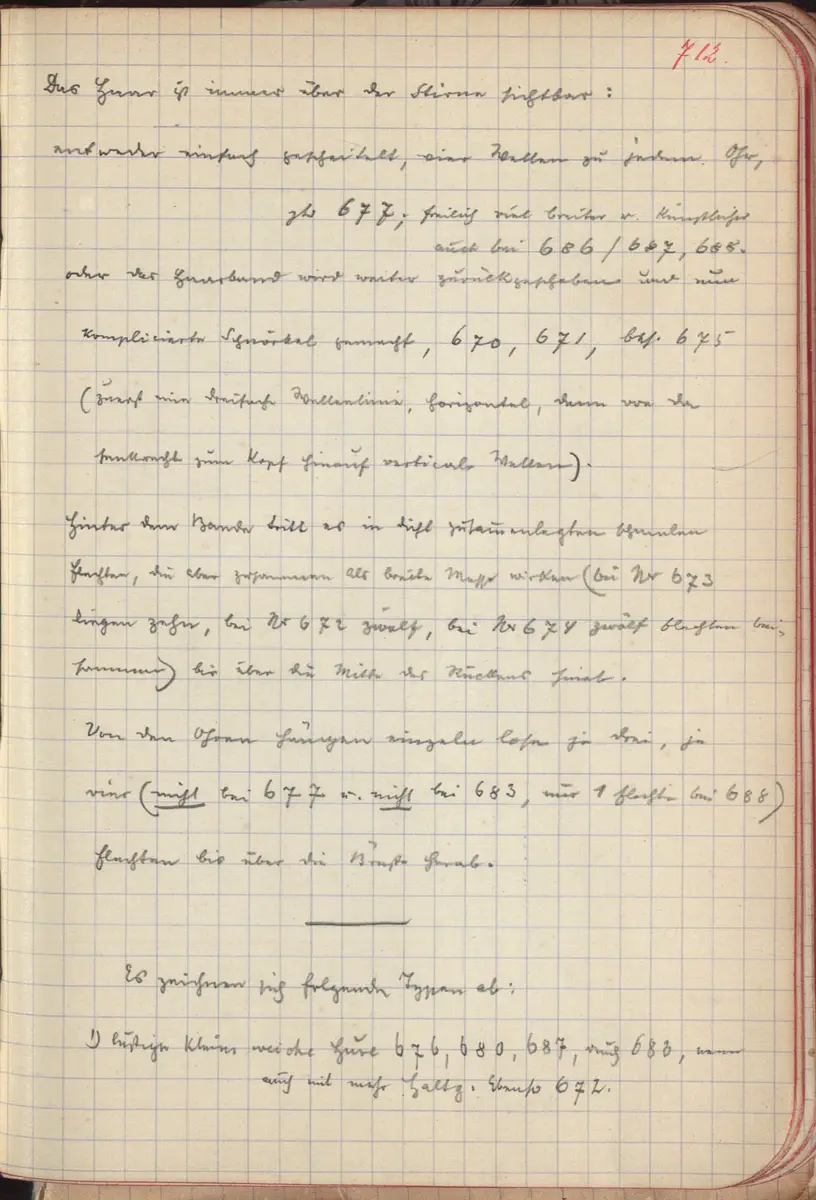 712.
Das Haar ist immer über der Stirne sichtbar:
entweder einfach gescheitelt, vier Wellen zu jedem Ohr,
677; freilich viel breiter u. künstlicher
auch bei 686/687, 688.
oder das Haarband wird weiter zurückgeschoben und nun
komplicierte Schnörkel gemacht, 670, 671, bes. 675
(zuerst eine dreifache Wellenlinie, horizontal, dann von da
senkrecht zum Kopf hinauf verticale Wellen).
Hinter dem Bande tritt es in dicht zusammenlegten schmalen
Flechten, die aber zusammen als breite Masse wirken (bei Nr 673
liegen zehn, bei Nr 672 zwölf, bei Nr 674 zwölf Flechten bei-
sammen) bis über die Mitte des Rückens hinab.
Von den Ohren hängen einzeln lose je drei, je
vier (nicht bei 677 u. nicht bei 683, nur 1 Flechte bei 688)
Flechten bis über die Brüste herab.
Es zeichnen sich folgende Typen ab:
1) lustige kleine weiche 676, 680, 687, auch 683, wenn
auch mit mehr Haltg. Ebenso 672.